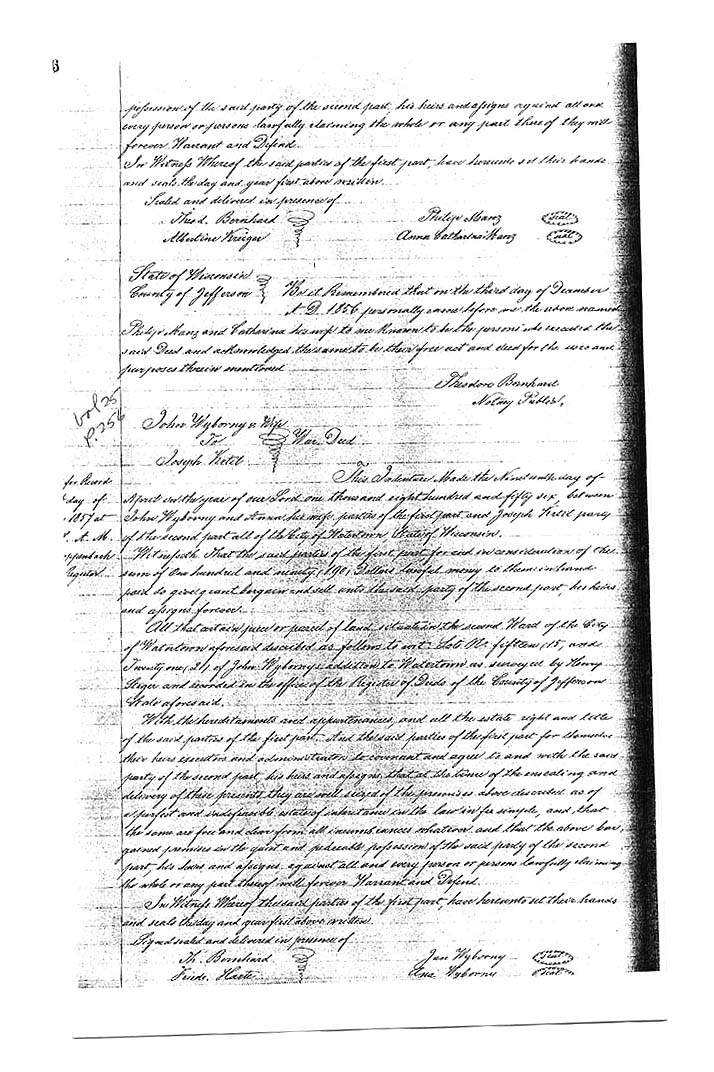 possession of the said party of the second part, his heirs and assigns against all and
every person or persons lawfully claiming the whole or any part thereof they will
forever Warrant and Defend.
In Witness Whereof the said parties of the first part, have hereunto set their hands
and seals the day and year first above written.
Sealed and delivered in presence of
Theod. Bernhard
Philip Manz Seal
Albertine Krieger
Anna Catharina Manz Seal
State of Wisconsin
County of Jefferson
Be it Remembered that on the third day of December
A. D. 1856 personally came before me the above named
Philip Manz and Catharina his wife to me known to be the persons who executed the
said Deed and acknowledged the same to be their free act and deed for the uses and
purposes therein mentioned
Theodore Bernhard
Notary Public.
vol 25
p. 256
John Wyborny & Wife
To War. Deed
Joseph Kertl
for Record
day of
1857 at
A. M.
Register
This Indenture Made the Nineteenth day of
April in the year of our Lord one thousand eight hundred and fifty six, between
John Wyborny and Anna his wife, parties of the first part and Joseph Kertl party
of the second part all of the City of Watertown, State of Wisconsin.
Witnesseth That the said parties of the first part, for and in consideration of the
sum of One hundred and ninety (190) Dollars lawful money to them in hand
paid do give grant bargain and sell unto the said party of the second part, his heirs
and assigns forever.
All that certain piece or parcel of land, situate in the second Ward of the City
of Watertown aforesaid described as follows to wit: Lots No. fifteen (15) and
Twenty one (21) of John Wyborny's addition to Watertown as surveyed by Henry
and recorded in the office of the Register of Deeds of the County of Jefferson
State aforesaid.
With the hereditaments and appurtenances, and all the estate right and title
of the said parties of the first part. And the said parties of the first part for themselves
their heirs executors and administrators do covenant and agree to and with the said
party of the second part, his heirs and assigns, that at the time of the ensealing and
delivery of these presents they are well seized of the premises above described as of
a perfect and indefeasible estate of inheritance in the law in fee simple, and, that
the same are free and clear from all incumbrances whatever and that the above bar-
gained premises in the quiet and peaceable possession of the said party of the second
part, his heirs and assigns, against all and every person or persons lawfully claiming
the whole or any part thereof will forever Warrant and Defend.
In Witness Whereof the said parties of the first part, have hereunto set their hands
and seals the day and year first above written
Signed sealed and delivered in presence of
Th. Bernhard
Jan Wyborny Seal
Friedr.
Ana Wyborny Seal